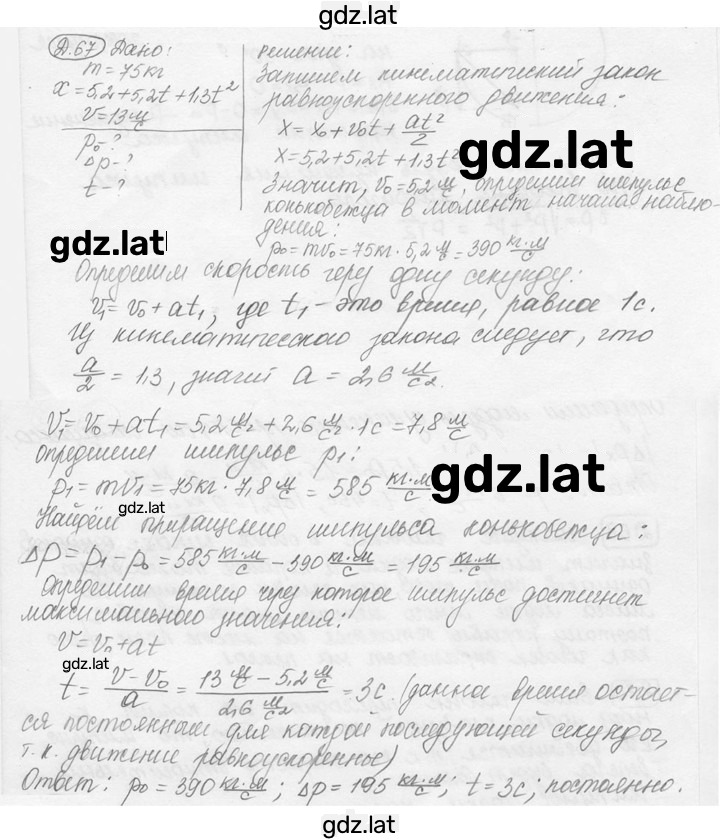 gdz.lat
Д.67 Дано:
m = 75 кг
x = 5,2 + 5,2t + 1,3t²
v = 13 м/с
p₀ - ?
Δp - ?
t - ?
решение:
Запишем кинематический закон
равноускоренного движения:
x = x₀ + v₀t + at²/2
x = 5,2 + 5,2t + 1,3t²
gdz.lat
Значит, v₀ = 5,2 м/с, определим импульс
конькобежца в момент начала наблю-
дения:
p₀ = mv₀ = 75 кг · 5,2 м/с = 390 кг·м/с
gdz.lat
Определим скорость через одну секунду:
v₁ = v₀ + at₁, где t₁ - это время, равное 1 с.
Из кинематического закона следует, что
a/2 = 1,3, значит a = 2,6 м/с².
v₁ = v₀ + at₁ = 5,2 м/с + 2,6 м/с² · 1с = 7,8 м/с
определим импульс p₁:
p₁ = mv₁ = 75 кг · 7,8 м/с = 585 кг·м/с
gdz.lat
gdz.lat
Найдём приращение импульса конькобежца:
Δp = p₁ - p₀ = 585 кг·м/с - 390 кг·м/с = 195 кг·м/с
Определим время через которое импульс достигнет
максимального значения:
v = v₀ + at
gdz.lat
t = v - v₀/a = 13 м/с - 5,2 м/с/2,6 м/с² = 3с. (данное время остает-
ся постоянным для каторой последующей секунды,
т.к. движение равноускоренное)
Ответ: p₀ = 390 кг·м/с; Δp = 195 кг·м/с; t = 3с; постоянно.
gdz.lat